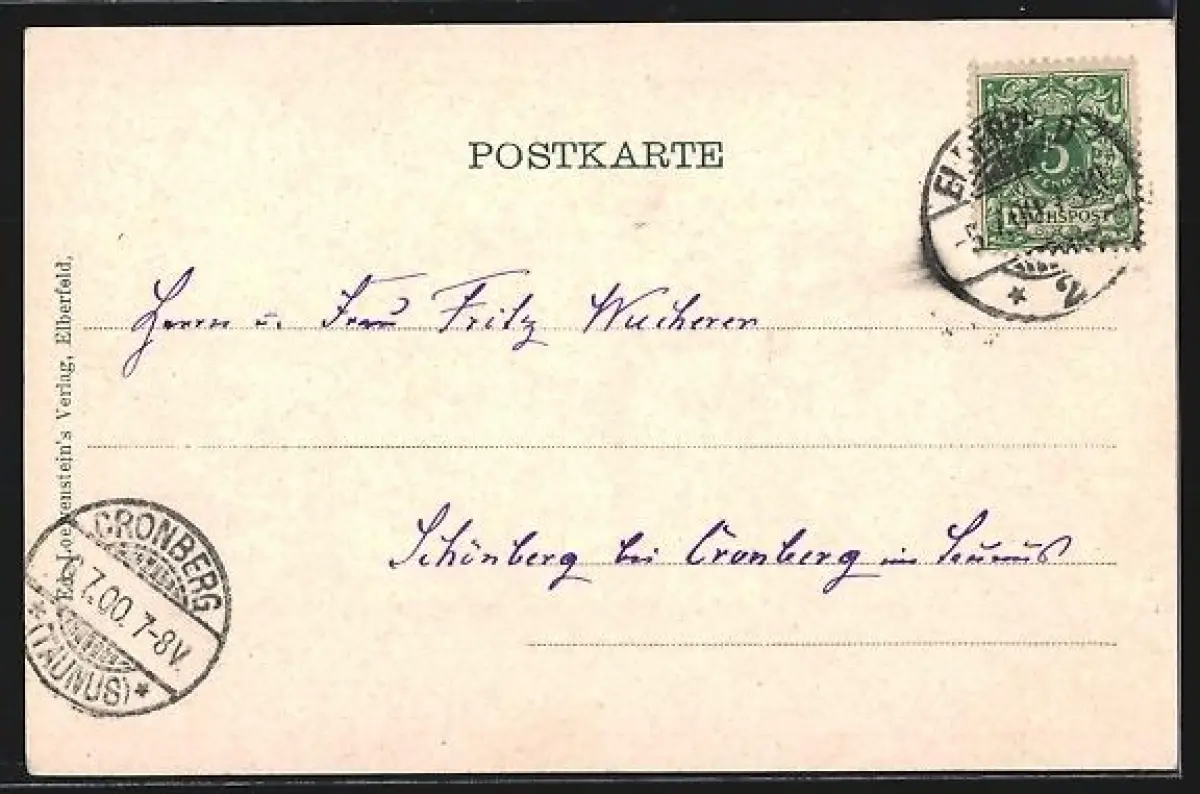 POSTKARTE
5
REICHSPOST
Herrn u. Frau Fritz Wucherer
Schönberg bei Cronberg im Taunus
Loewenstein's Verlag, Elberfeld,
CRONBERG
7.00. 7-8V.
* (TAUNUS) *